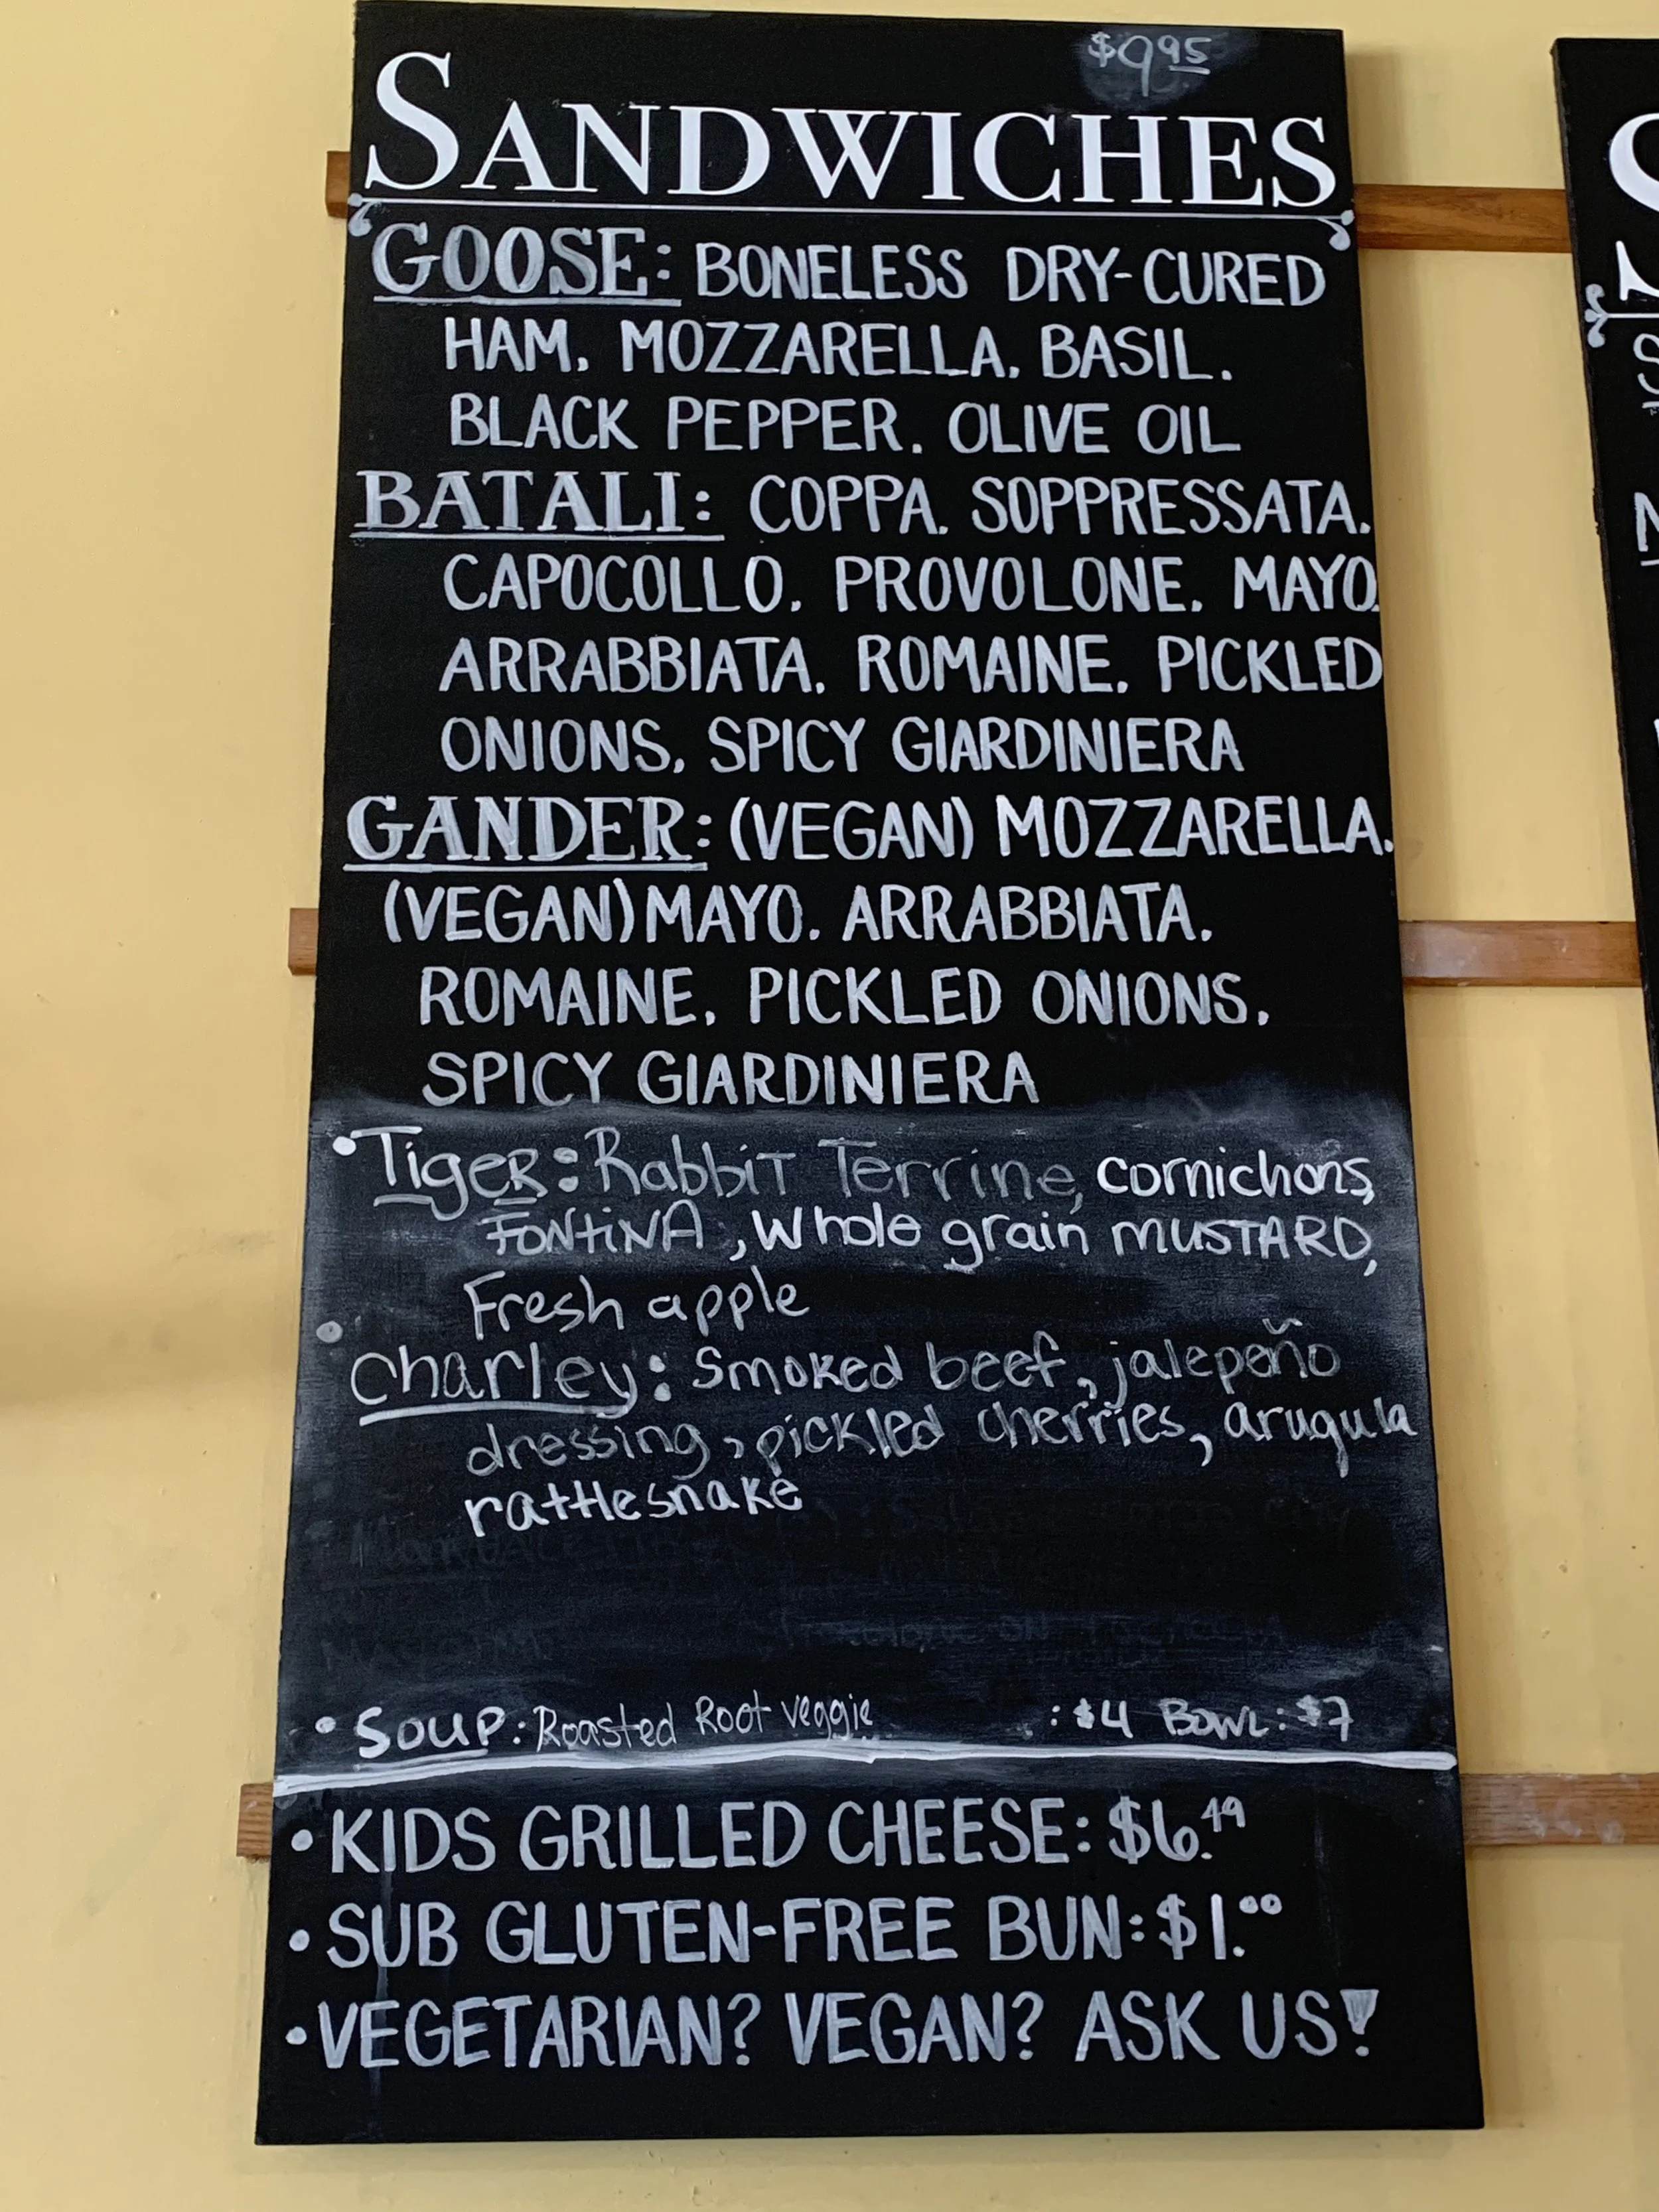 $9.95
SANDWICHES
GOOSE: BONELESS DRY-CURED
HAM. MOZZARELLA. BASIL.
BLACK PEPPER. OLIVE OIL
BATALI: COPPA. SOPPRESSATA.
CAPOCOLLO. PROVOLONE. MAYO.
ARRABBIATA. ROMAINE. PICKLED
ONIONS. SPICY GIARDINIERA
GANDER: (VEGAN) MOZZARELLA.
(VEGAN) MAYO. ARRABBIATA.
ROMAINE. PICKLED ONIONS.
SPICY GIARDINIERA
•Tiger: Rabbit Terrine, cornichons,
FONTiNA, Whole grain MUSTARD,
Fresh apple
• Charley: Smoked beef, jalepeño
dressing, pickled cherries, arugula
rattlesnake
• Soup: Roasted Root veggie : $4 BOWL: $7
• KIDS GRILLED CHEESE: $6.49
• SUB GLUTEN-FREE BUN: $1.00
• VEGETARIAN? VEGAN? ASK US!